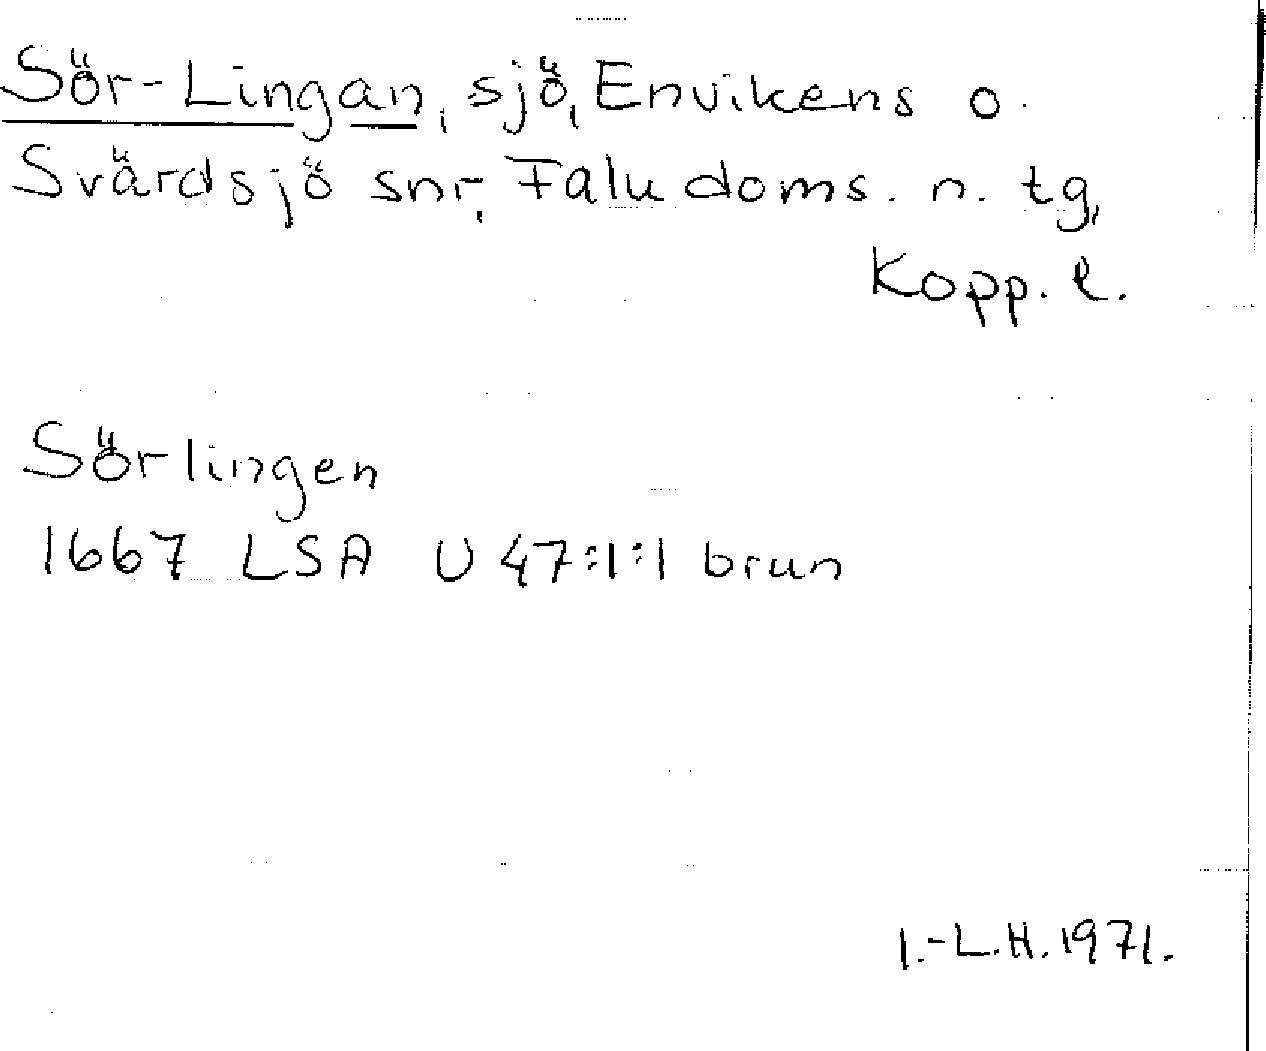 Sör-Lingan, sjö, Envikens o.
Svärdsjö snr, Falu doms. n. tg,
Kopp. l.
Sörlingen
1667 LSA U 47:1:1 brun
I.-L.H. 1971.